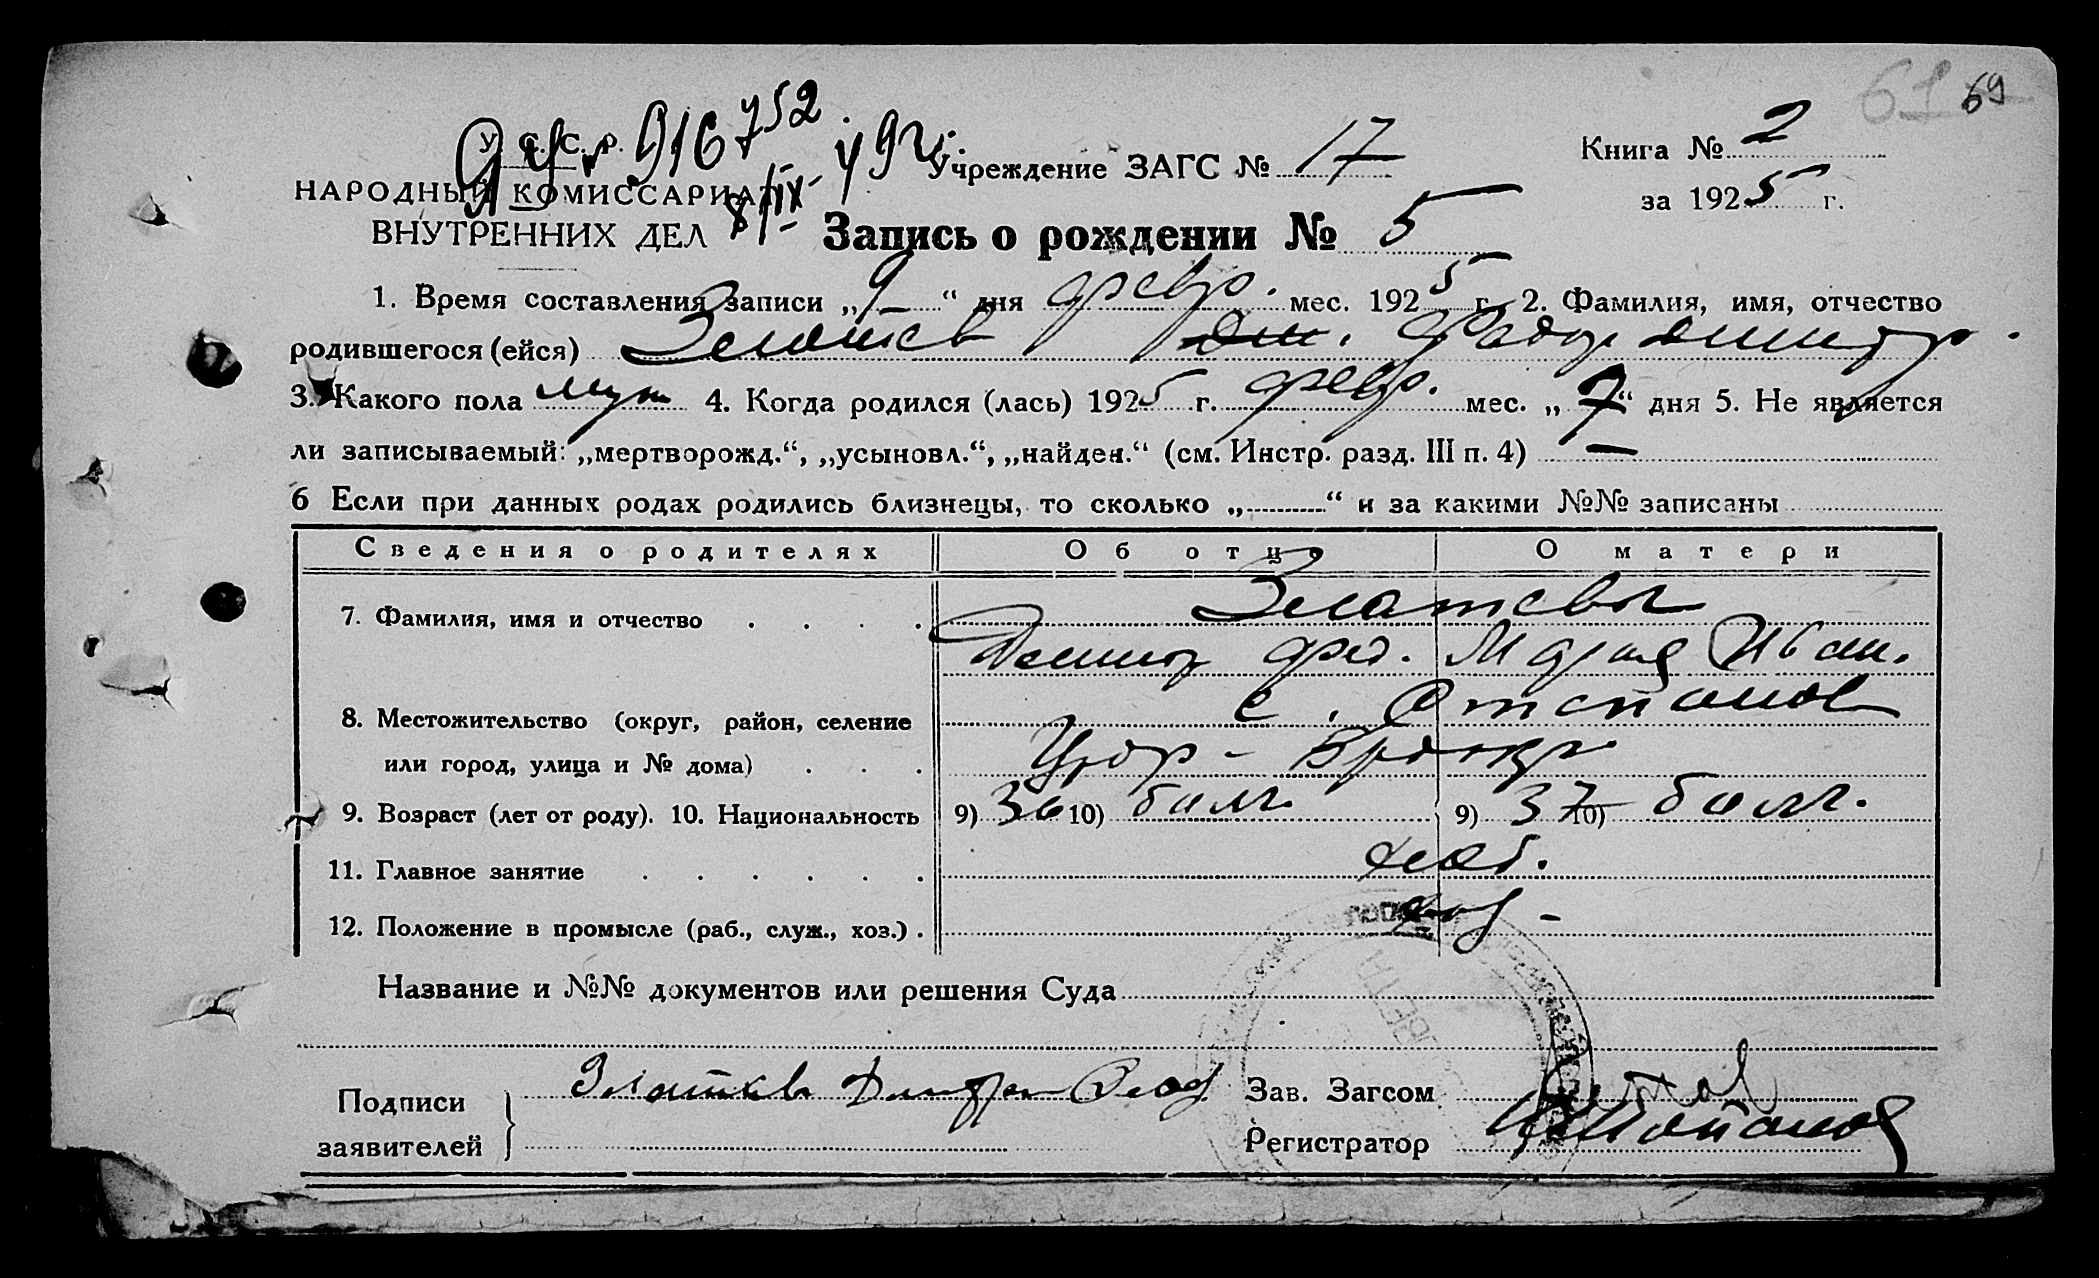 61 69
У. С. С. Р.
916752
8/IX - 49г.
НАРОДНЫЙ КОМИССАРИАТ
ВНУТРЕННИХ ДЕЛ
Учреждение ЗАГС № 17
Книга № 2
за 1925 г.
Запись о рождении № 5
1. Время составления записи „9“ дня февр. мес. 1925 г. 2. Фамилия, имя, отчество
родившегося (ейся) Златев Федор Дмитр.
3. Какого пола муж 4. Когда родился (лась) 1925 г. февр. мес. „7“ дня 5. Не является
ли записываемый: „мертворожд.“, „усыновл.“, „найден.“ (см. Инстр. разд. III п. 4) —
6 Если при данных родах родились близнецы, то сколько „ “ и за какими №№ записаны
Сведения о родителях Об отце О матери
7. Фамилия, имя и отчество Златевы
Дмитр фед. Мария Иван.
8. Местожительство (округ, район, селение с.
или город, улица и № дома)
9. Возраст (лет от роду). 10. Национальность 9) 36 10) болг. 9) 37 10) болг.
11. Главное занятие хлеб.
12. Положение в промысле (раб., служ., хоз.) хоз -
Название и №№ документов или решения Суда
Подписи
заявителей
Златев Дмитри Фед
Зав. Загсом
Регистратор